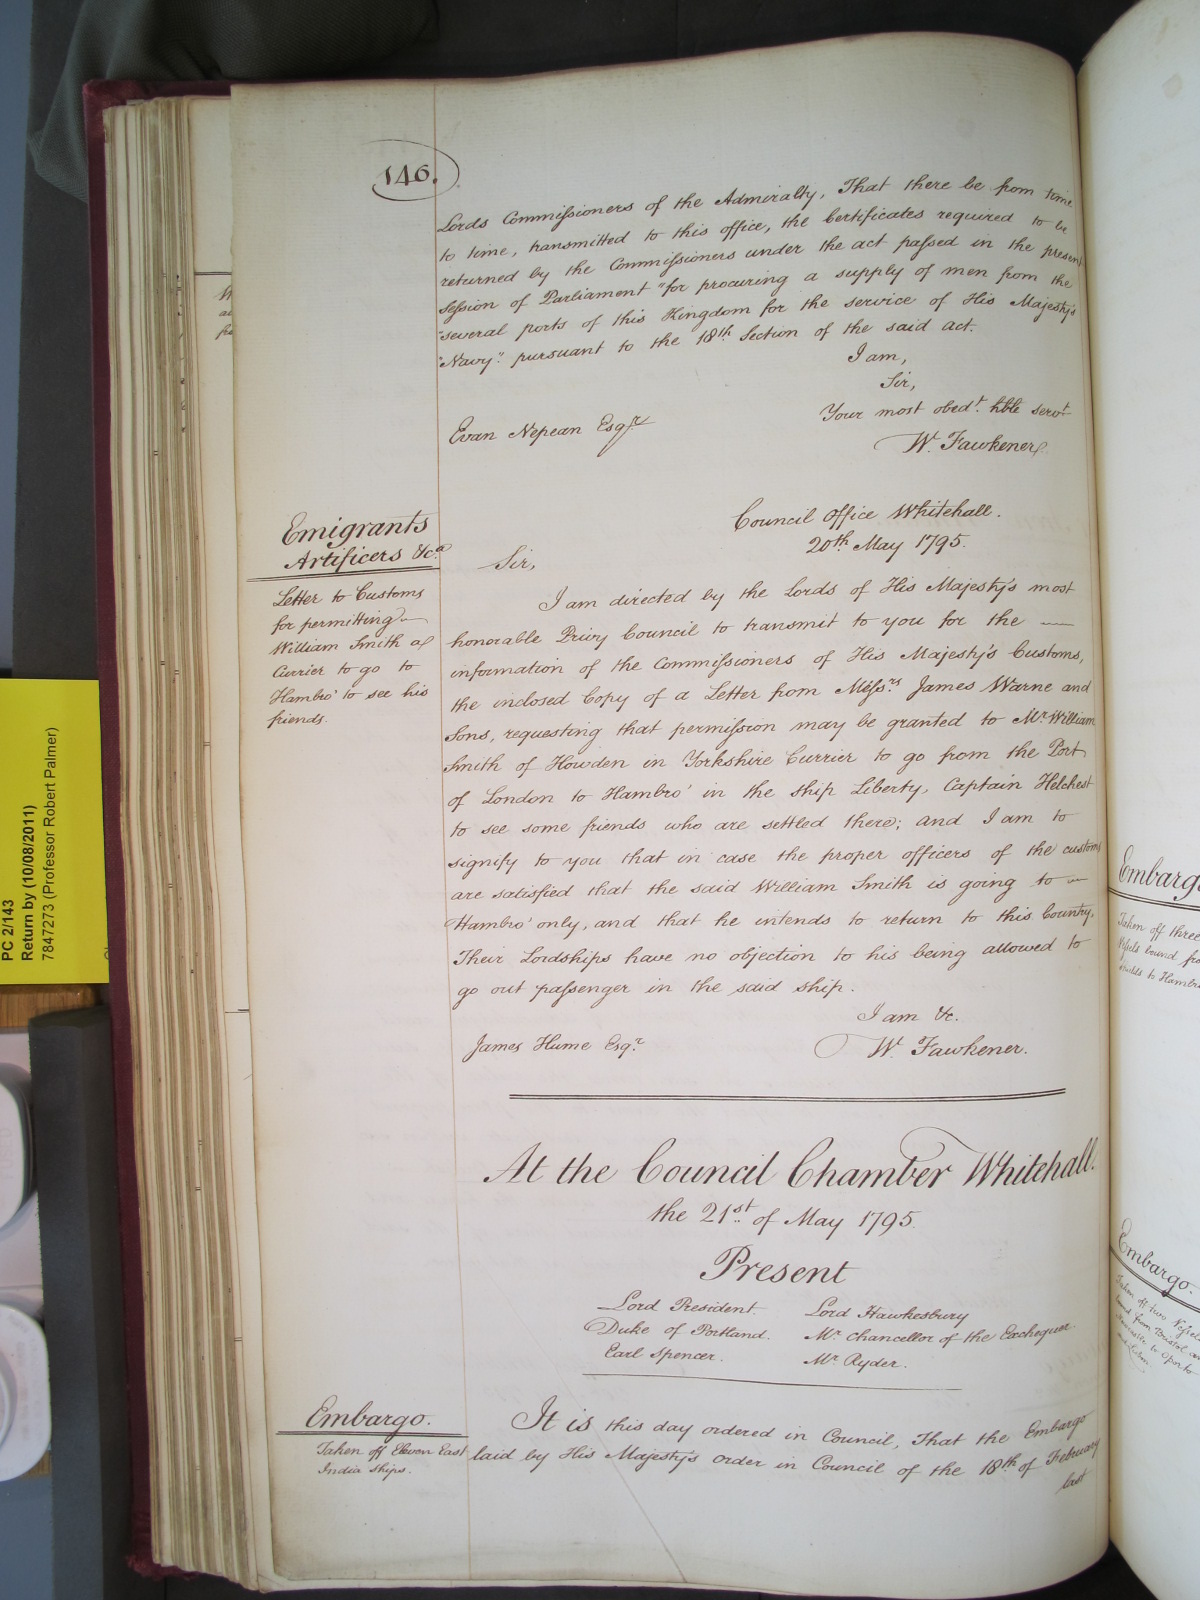 146.
Lords Commissioners of the Admiralty, That there be from time
to time, transmitted to this office, the Certificates required to be
returned by the Commissioners under the act passed in the present
Session of Parliament "for procuring a supply of men from the
"several ports of this Kingdom for the service of His Majesty's
"Navy". pursuant to the 18th Section of the said act.
I am,
Sir,
Your most obedt. hble servt
Evan Nepean Esqr.
W. Fawkener
Emigrants
Artificers &ca
Letter to Customs
for permitting
William Smith a
Currier to go to
Hambro' to see his
friends.
Council Office Whitehall.
20th May 1795.
Sir,
I am directed by the Lords of His Majesty's most
honorable Privy Council to transmit to you for the
information of the Commissioners of His Majesty's Customs,
the inclosed Copy of a Letter from Messrs. James Warne and
Sons, requesting that permission may be granted to Mr. William
Smith of Howden in Yorkshire Currier to go from the Port
of London to Hambro' in the ship Liberty, Captain Helchest
to see some friends who are settled there; and I am to
signify to you that in case the proper officers of the customs
are satisfied that the said William Smith is going to
Hambro' only, and that he intends to return to this Country,
Their Lordships have no objection to his being allowed to
go out passenger in the said ship.
I am &c.
James Hume Esqr.
W. Fawkener.
At the Council Chamber Whitehall.
the 21st of May 1795.
Present
Lord President. Lord Hawkesbury
Duke of Portland. Mr. Chancellor of the Exchequer.
Earl Spencer. Mr. Ryder.
Embargo.
Taken off Eleven East
India Ships.
It is this day ordered in Council, That the Embargo
laid by His Majesty's order in Council of the 18th of February
last
PC 2/143
Return by (10/08/2011)
7847273 (Professor Robert Palmer)
Embargo
Taken off three
bound
to Hambro
Embargo.
Taken off two Vessels
from Bristol
to Oporto